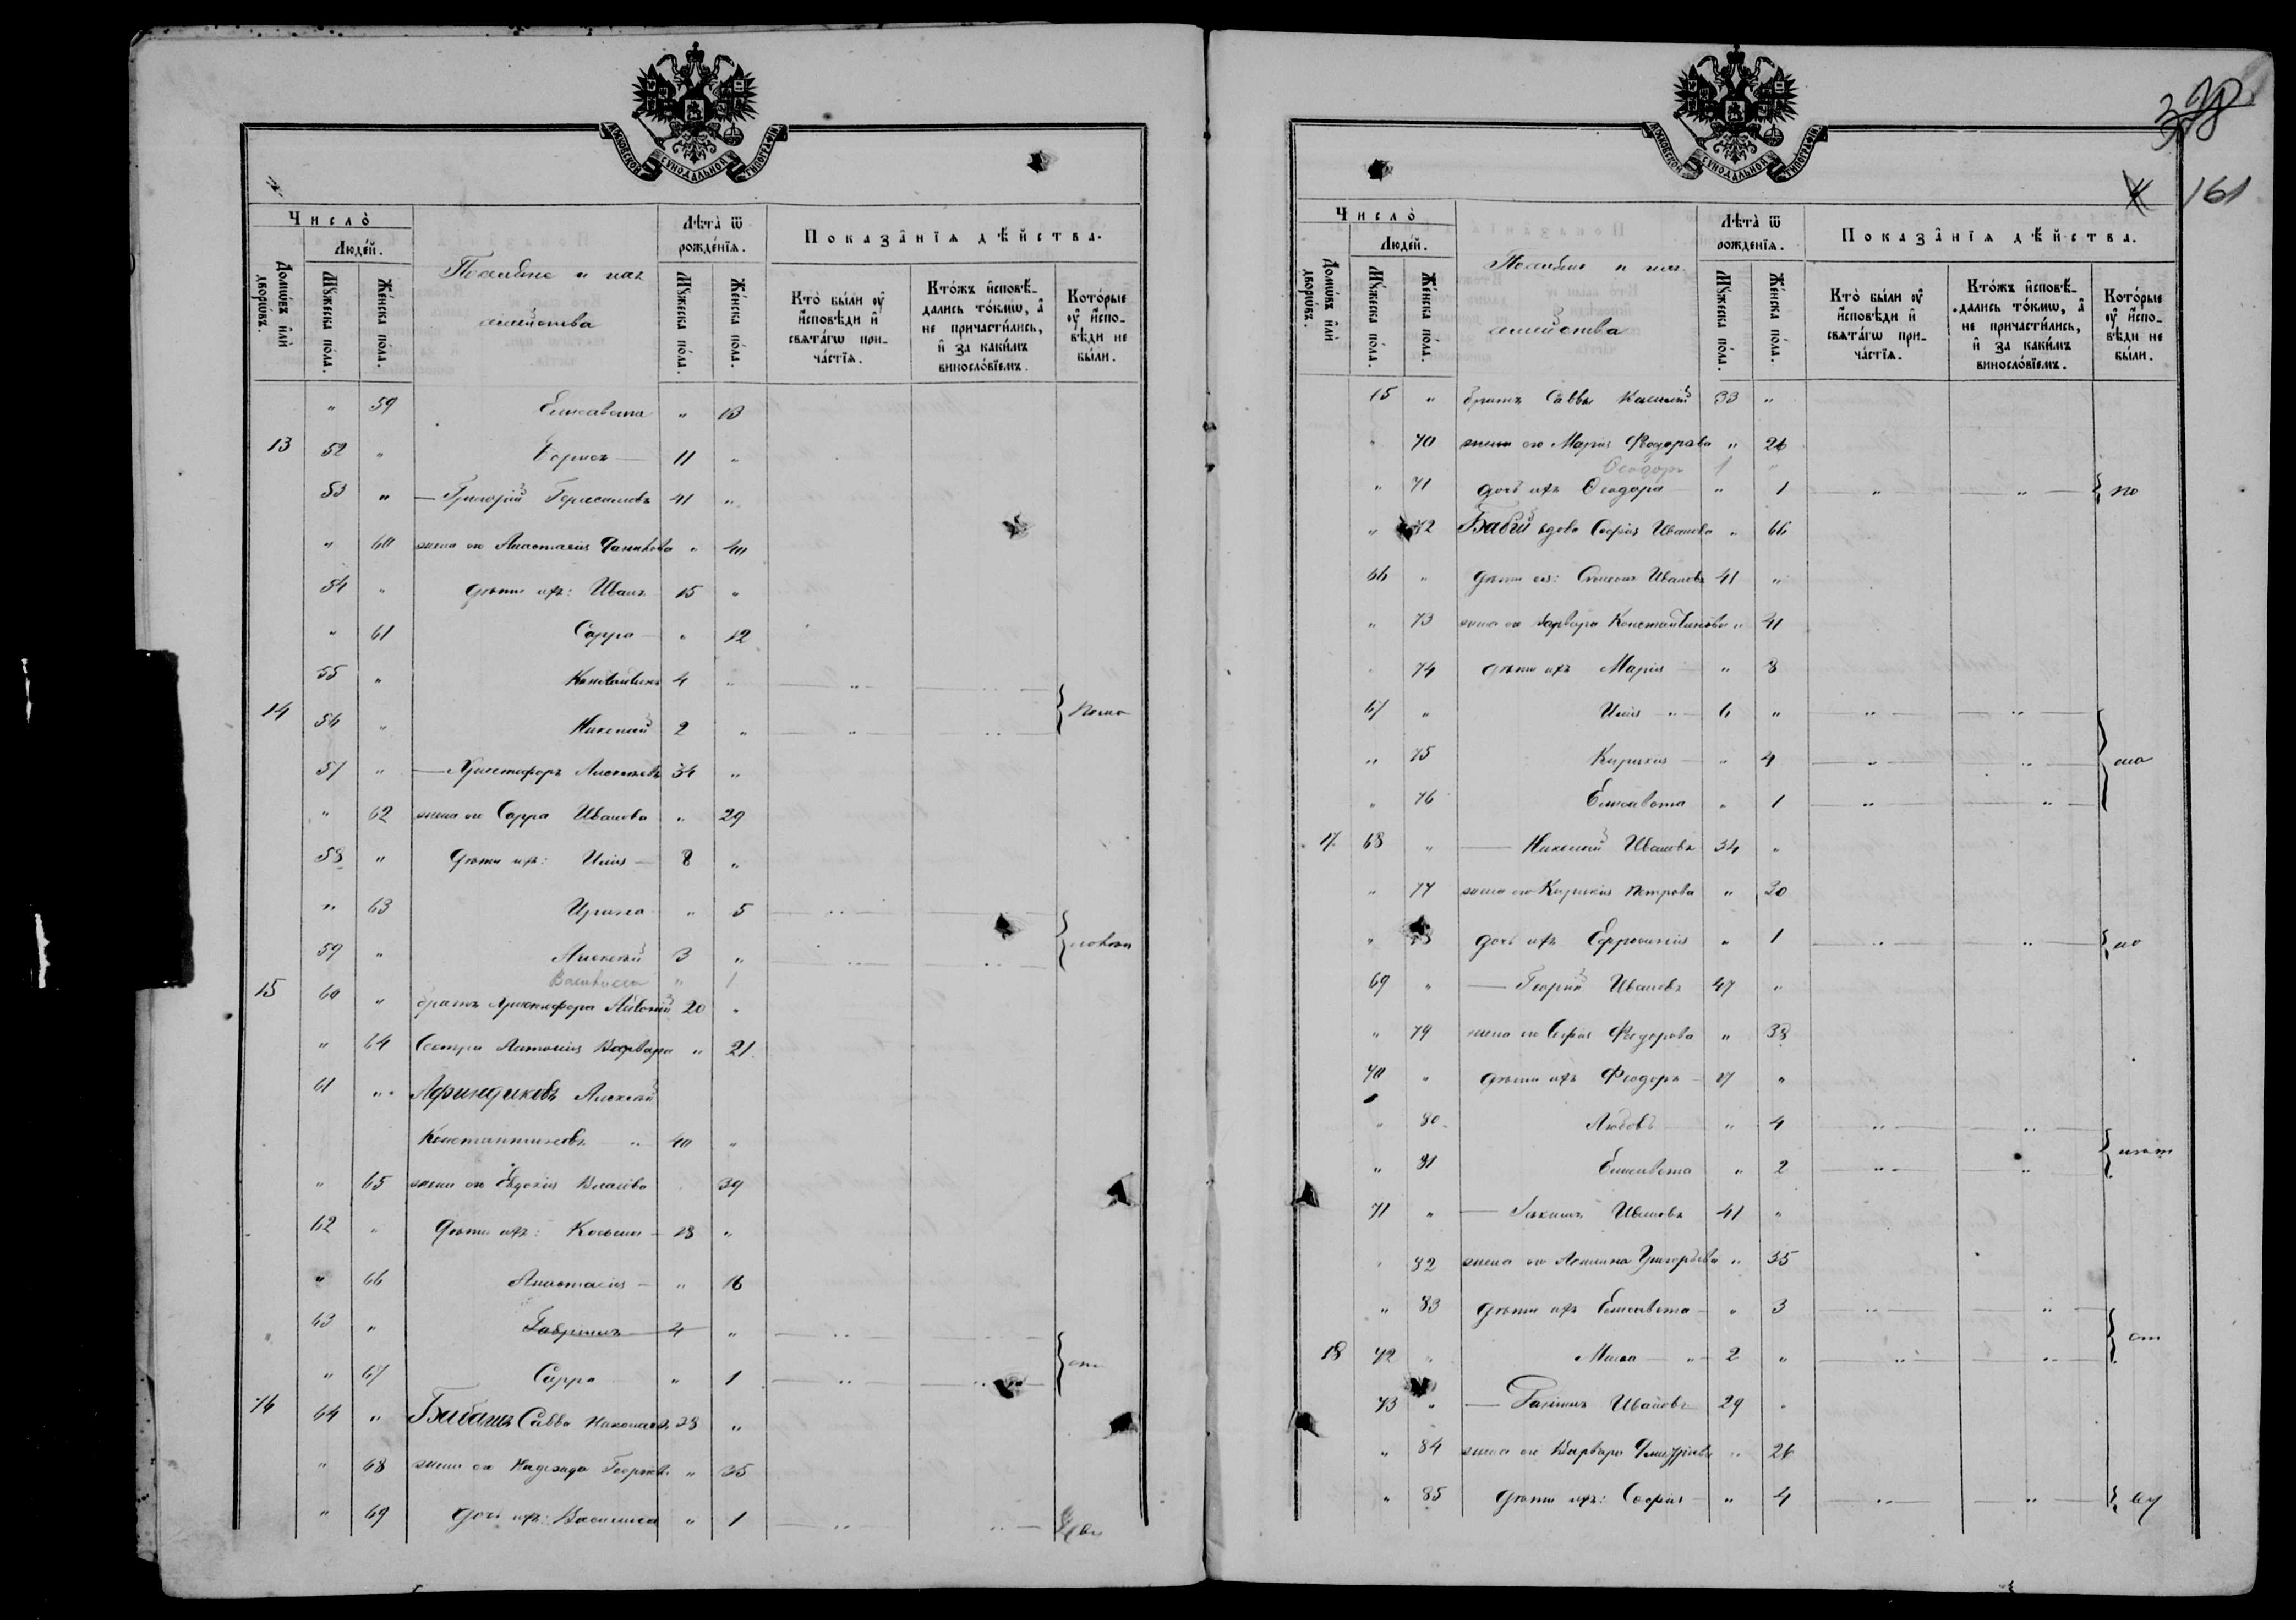 МОСКОВСКОЙ СУНОДАЛЬНОЙ ТИПОГРАФІИ
Число̀
Люде́й.
Домѡ́въ и҆лѝ дворѡ́въ.
Мꙋ́жеска по́ла.
Же́нска по́ла.
Поселяне и ихъ
семейства
Лѣта̀ ѿ рожде́нїѧ.
Мꙋ́жеска по́ла.
Же́нска по́ла.
Показа̂нїѧ дѣ́йства.
Кто̀ бы́ли ᲂу҆ и҆сповѣ́ди и҆ свѧта́гѡ прича́стїѧ.
Кто́жъ и҆сповѣ́дались то́кмѡ, а҆ не причасти́лись, и҆ за каки́мъ винослові́емъ.
Кото́рые ᲂу҆ и҆сповѣ́ди не бы́ли.
" 59 Елисавета " 13
13 52 " Борисъ — 11 "
53 " — Григорій Герасимовъ 41 "
" 60 жена его Анастасія " 40
54 " дѣти ихъ: Иванъ 15 "
" 61 Сарра — " 12
55 " Константинъ 4 " — " — — " —
14 56 " Николай 2 " — " — — " —
57 " — Христофоръ Алексѣевъ 34 "
" 62 жена его Сарра Иванова " 29
58 " дѣти ихъ: Илія — 8 "
" 63 Ирина " 5 — " —
59 " Алексѣй 3 " — " — — " —
Василисса " 1
15 60 " братъ Христофора Антоній 20 "
" 64 Сестра Антонія Варвара " 21
61 " Афиндиковъ Алексѣй
Константиновъ " 40 "
" 65 жена его Евдокія " 39
62 " дѣти ихъ: Косьма — 18 "
" 66 Анастасія — " 16
63 " Гавріилъ — 4 " — " — — " —
" 67 Сарра " 1 — " — — " —
16 64 " Бабашъ Савва Николаевъ 38 "
" 68 жена его Надежда Георгіев. " 35
" 69 дочь ихъ: Василисса " 1 — " — " —
МОСКОВСКОЙ СУНОДАЛЬНОЙ ТИПОГРАФІИ
161
Число̀
Люде́й.
Домѡ́въ и҆лѝ дворѡ́въ.
Мꙋ́жеска по́ла.
Же́нска по́ла.
Поселяне и ихъ
семейства
Лѣта̀ ѿ рожде́нїѧ.
Мꙋ́жеска по́ла.
Же́нска по́ла.
Показа̂нїѧ дѣ́йства.
Кто̀ бы́ли ᲂу҆ и҆сповѣ́ди и҆ свѧта́гѡ прича́стїѧ.
Кто́жъ и҆сповѣ́дались то́кмѡ, а҆ не причасти́лись, и҆ за каки́мъ винослові́емъ.
Кото́рые ᲂу҆ и҆сповѣ́ди не бы́ли.
65 " братъ Саввы 33 "
" 70 жена его Марія Феодорова " 26
Ѳеодоръ 1 "
" 71 дочь ихъ Ѳеодора " 1 " — " — по
" 72 Бабій вдова Софія Иванова " 66
66 " дѣти ея: Симеонъ Ивановъ 41 "
" 73 жена его Варвара Константинова " 41
" 74 дѣти ихъ Марія " 8
67 " Илія " — 6 " — " — — " —
" 75 Киріакія — " 4 — " — — " —
" 76 Елисавета " 1 — " — — " —
17 68 " — Николай Ивановъ 34 "
" 77 жена его Киріакія Петрова " 30
" 78 дочь ихъ Ефросинія " 1 — " — — " —
69 " — Георгій Ивановъ 47 "
" 79 жена его Софія Феодорова " 38
70 " дѣти ихъ Феодоръ — 17 "
" 80 Любовь " 4 — " — — " —
" 81 Елисавета " 2 — " — — " —
71 " — Іоакимъ Ивановъ 41 "
" 82 жена его Акилина Григорьева " 35
" 83 дѣти ихъ Елисавета — " 3 — " — — " —
18 72 " " — 2 " — " — — " —
73 " — Ивановъ 29 "
" 84 жена его Варвара " 26
" 85 дѣти ихъ: Софія — " 4 — " — — " —